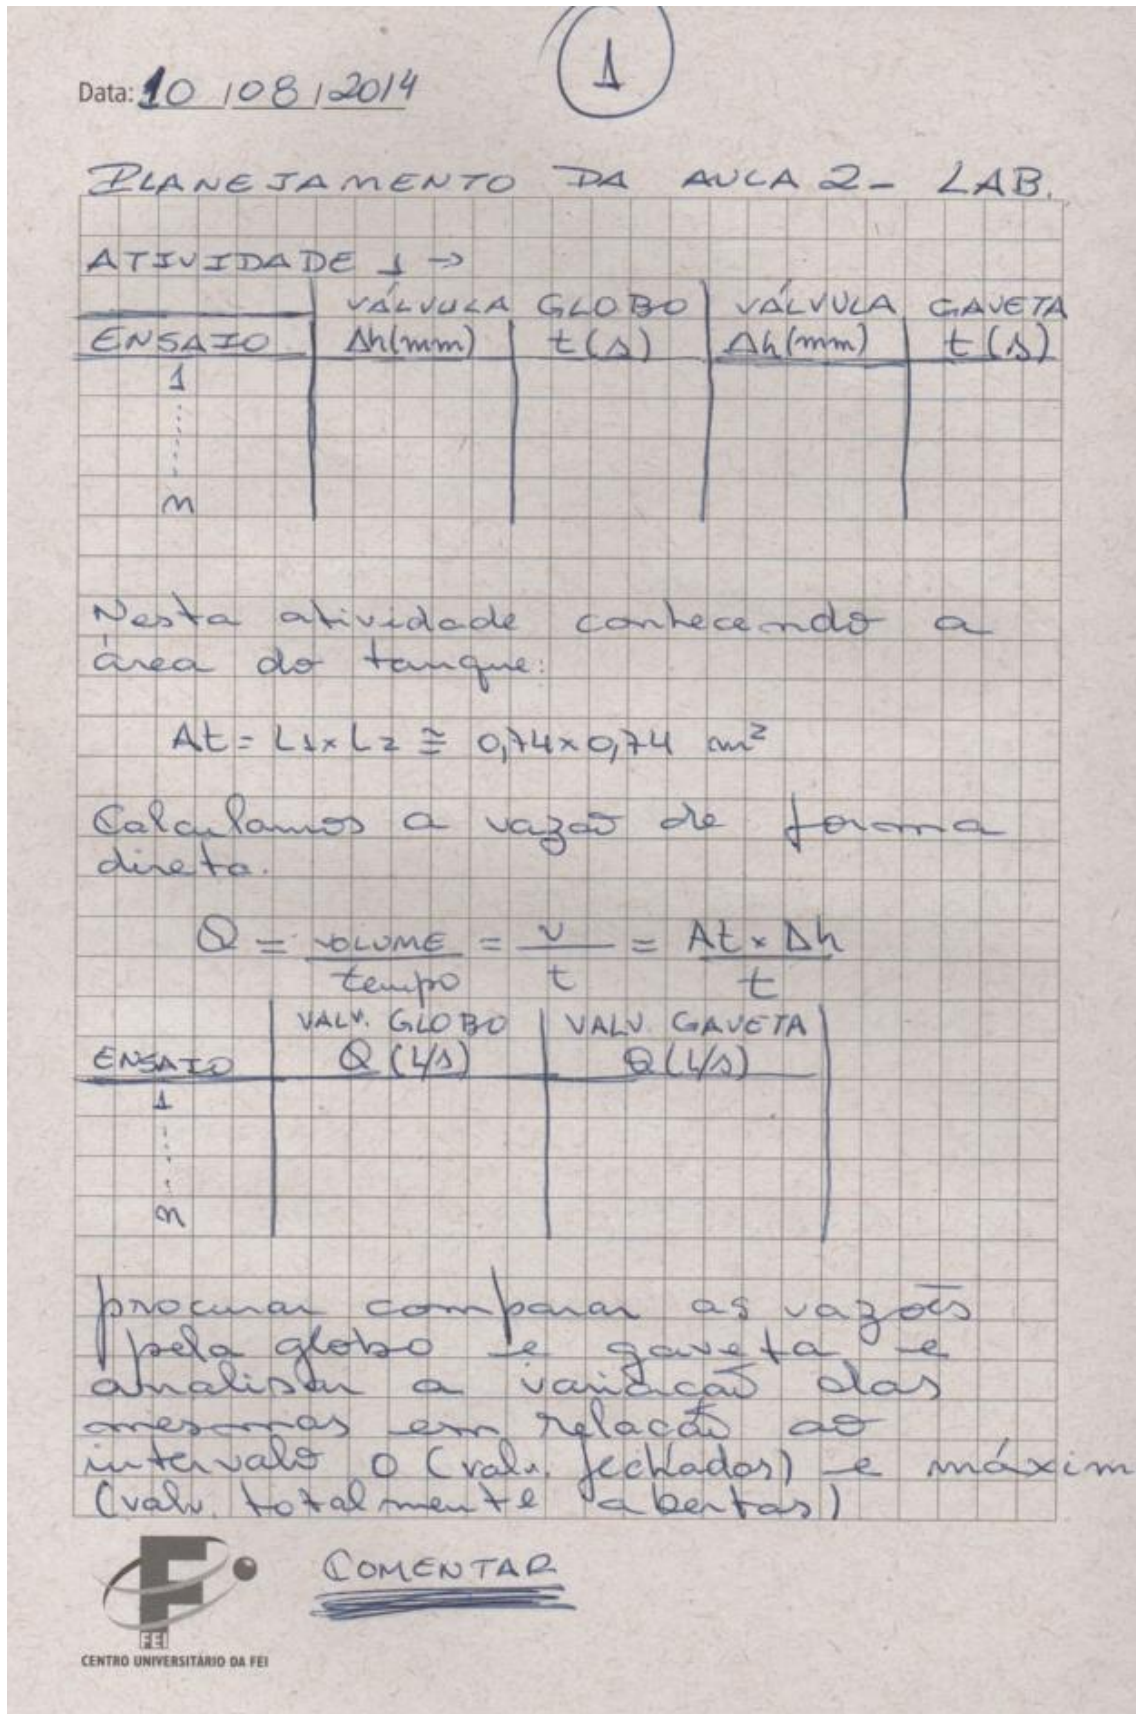 1
Data: 10/08/2014
PLANEJAMENTO DA AULA 2- LAB.
ATIVIDADE 1 →
VÁLVULA GLOBO VÁLVULA GAVETA
ENSAIO Δh(mm) t(s) Δh(mm) t(s)
1
n
Nesta atividade conhecendo a
área do tanque:
At = L1 x L2 ≅ 0,74 x 0,74 m²
Calculamos a vazão de forma
direta.
Q = VOLUME/tempo = V/t = At x Δh/t
VALV. GLOBO VALV. GAVETA
ENSAIO Q (L/s) Q (L/s)
1
n
procurar comparar as vazões
pela globo e gaveta e
analisar a variação das
mesmas em relação ao
intervalo 0 (valv. fechadas) e máxim
(valv. totalmente abertas)
COMENTAR
FEI
CENTRO UNIVERSITÁRIO DA FEI